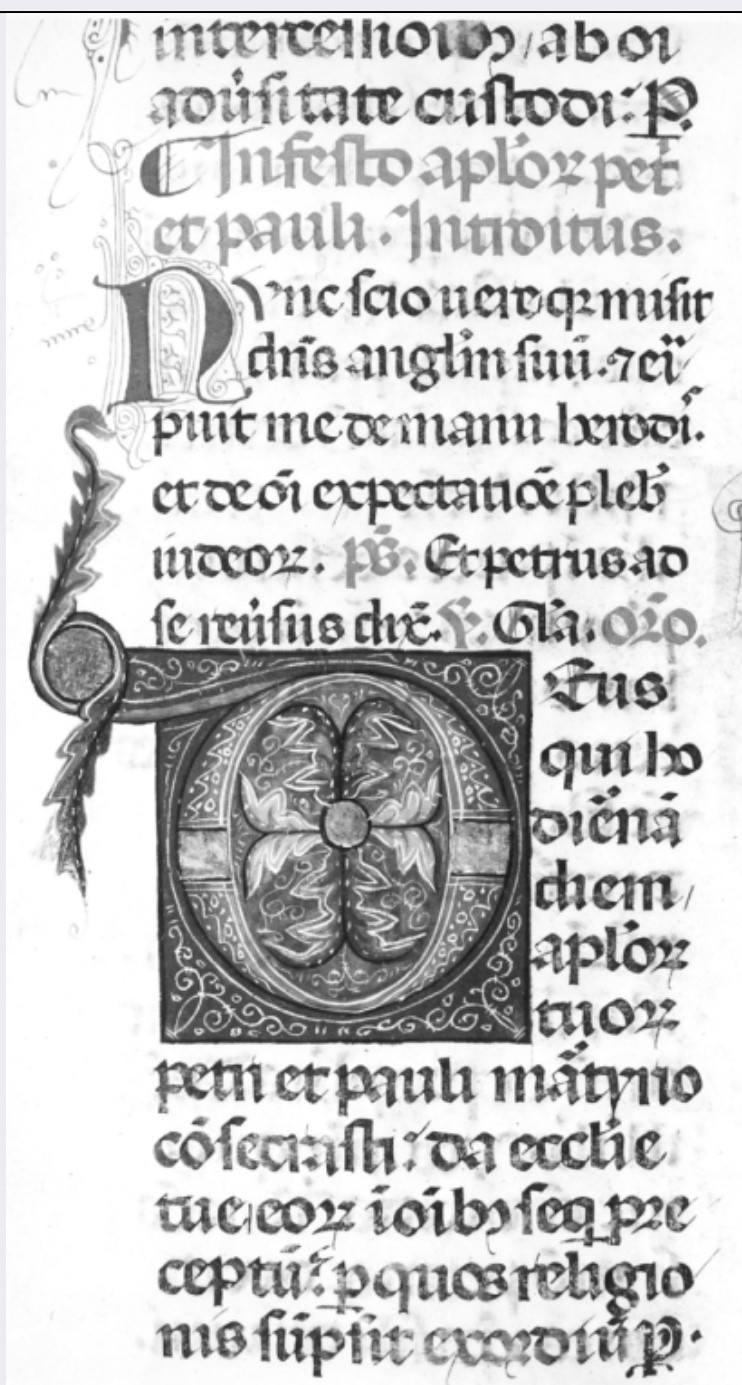 intercessionibꝫ ab oi
adũsitate custodi: P.
In festo aplo̅ꝝ pet̃
et pauli. Introitus.
Nunc scio uere qꝛ misit
dñs angl̃m suũ. ⁊ eri
puit me de manu herodĩ.
et de õi expectatiõe pleb̾
iudeoꝝ. p̃s. Et petrus ad
se reũsus dix̃. ℣. Gl̃a. Oꝛõ.
Deus
qui ho
diẽnã
diem
apl̃oꝝ
tuoꝝ
petri et pauli mãtyrio
cõsecrasti: da ecclẽie
tue eoꝝ ĩ oĩbꝫ seq̃ pꝛe
ceptũ: ꝑ quos religio
nis sũpsit exoꝛdiũ. P.